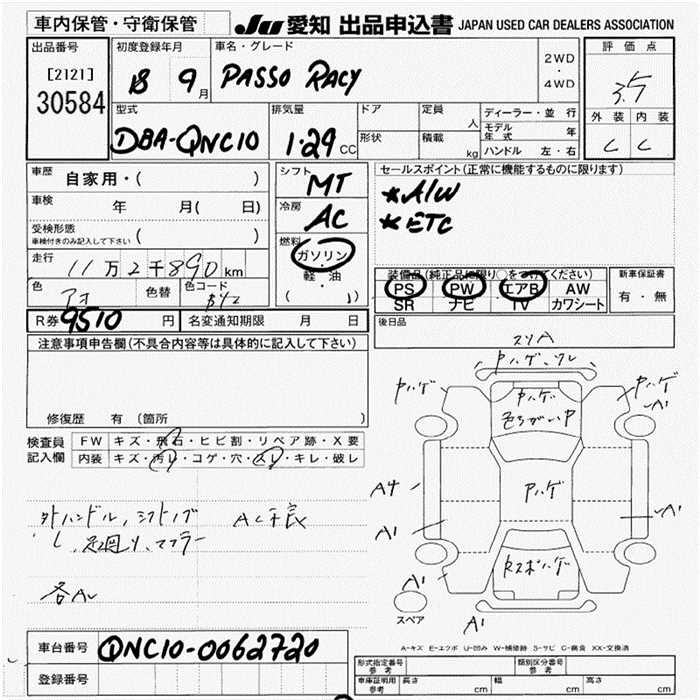 車内保管・守衛保管
JU 愛知 出品申込書 JAPAN USED CAR DEALERS ASSOCIATION
出品番号
[2121]
30584
初度登録年月
18 9月
車名・グレード
PASSO RACY
2WD
・
4WD
評価点
3.5
外装 内装
C C
型式
DBA-QNC10
排気量
1.29 CC
ドア
形状
定員
人
積載
kg
ディーラー・並行
モデル年式 年
ハンドル 左・右
車歴
自家用・( )
車検
年 月( 日)
受検形態
車検付きのみ記入して下さい ( )
走行
11万2千890km
色
アオ
色替
色コード
B42
シフト
MT
冷房
AC
燃料
ガソリン
・
軽・油
( )
セールスポイント(正常に機能するものに限ります)
*A/W
*ETC
装備品(純正品に限り○をつけてください)
PS PW エアB AW
SR ナビ TV カワシート
新車保証書
有・無
R券 9510 円
名変通知期限 月 日
後日品
注意事項申告欄(不具合内容等は具体的に記入して下さい)
修復歴 有 〔箇所 〕
検査員
記入欄
FW キズ・飛石・ヒビ割・リペア跡・X要
内装 キズ・汚レ・コゲ・穴・スレ・キレ・破レ
外ハンドル, シフトノブ AC不良
し, 足廻り、マフラー
各AU
スリA
Pハゲ、ワレ
Pハゲ
Pハゲ
A1
Pハゲ
色ちがいP
A4
Pハゲ
A1
A1
RスポハゲA1
A1
スペア
A1
A-キズ E-エクボ U-凹み W-補修跡 S-サビ C-腐食 XX-交換済
車台番号 QNC10-0062720
登録番号
形式指定番号
参考
類別区分番号
参考
車庫証明用
参考
長さ cm
幅 cm
高さ cm